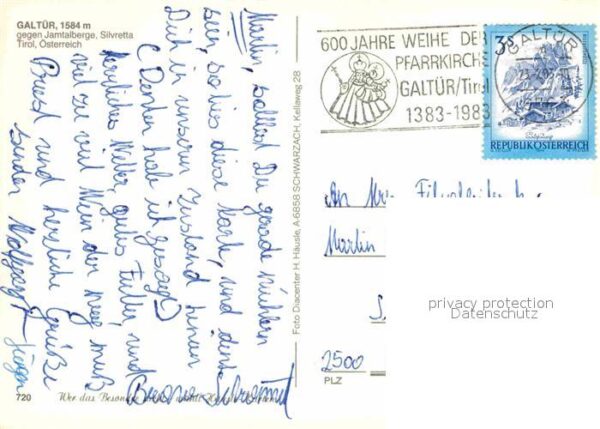 GALTÜR, 1584 m
gegen Jamtalberge, Silvretta
Tirol, Österreich
Martin, solltest Du gerade nüchtern
sein, so lies diese Karte, und denk
Dich in unseren Zustand hinein
(Denken habe ich gesagt)
herrliches Wetter, gutes Futter, und
viel zu viel Wein den Weg muß
Prost und herzliche Grüße
senden Wolfgang
Jürgen
Foto Diacenter H. Häusle, A-6858 SCHWARZACH, Kellaweg 28
600 JAHRE WEIHE DER
PFARRKIRCHE
GALTÜR/Tirol
1383-1983
GALTÜR
3S
REPUBLIK ÖSTERREICH
An
Martin
privacy protection
Datenschutz
2500
PLZ
720
Wer das Besondere